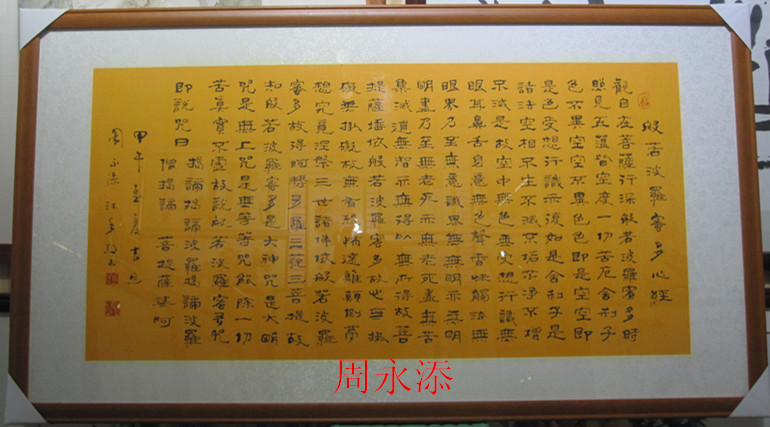 般若波羅蜜多心經
觀自在菩薩行深般若波羅蜜多時
照見五蘊皆空度一切苦厄舍利子
色不異空空不異色色即是空空即
是色受想行識亦復如是舍利子是
諸法空相不生不滅不垢不淨不增
不減是故空中無色無受想行識無
眼耳鼻舌身意無色聲香味觸法無
眼界乃至無意識界無無明亦無無
明盡乃至無老死亦無老死盡無苦
集滅道無智亦無得以無所得故菩
提薩埵依般若波羅蜜多故心無掛
礙無掛礙故無有恐怖遠離顛倒夢
想究竟涅槃三世諸佛依般若波羅
蜜多故得阿耨多羅三藐三菩提故
知般若波羅蜜多是大神咒是大明
咒是無上咒是無等等咒能除一切
苦真實不虛故說般若波羅蜜多咒
即說咒曰
揭諦揭諦波羅揭諦波羅
僧揭諦 菩提薩婆訶
甲午 夏吉日
周永添沐手敬書
周永添